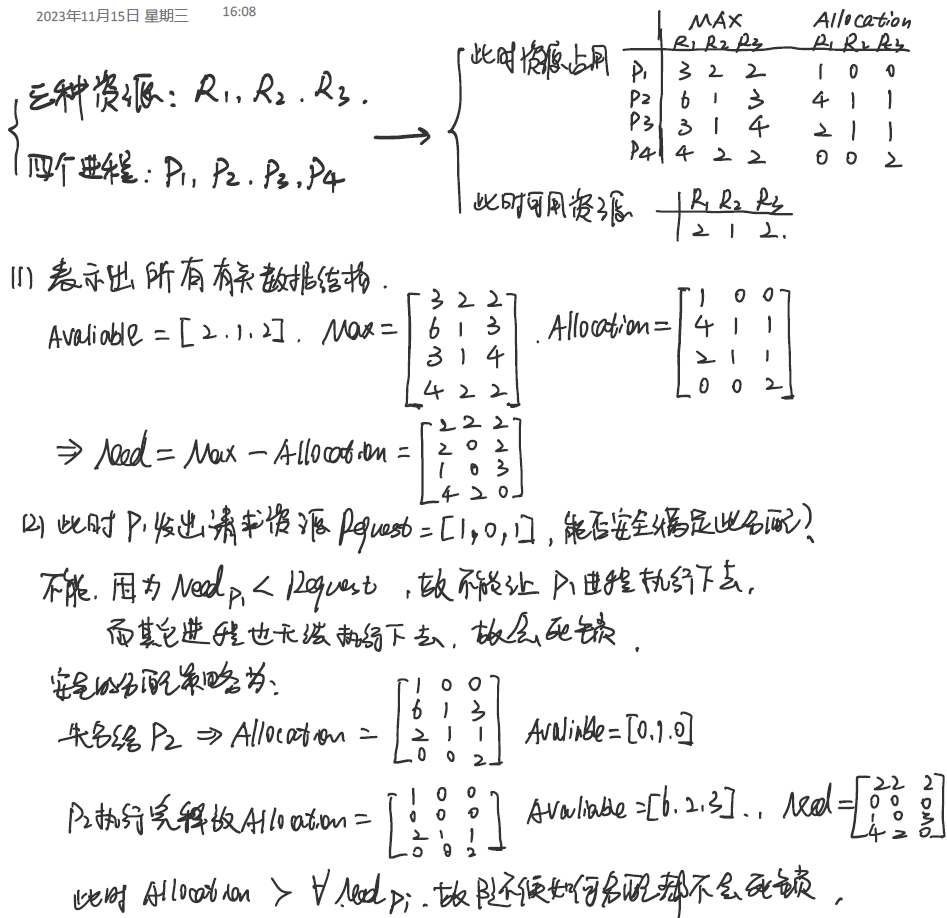 2023年11月15日 星期三 16:08
三种资源: R1, R2. R3.
四个进程: P1, P2. P3, P4
此时资源占用
MAX Allocation
R1 R2 R3 R1 R2 R3
P1 3 2 2 1 0 0
P2 6 1 3 4 1 1
P3 3 1 4 2 1 1
P4 4 2 2 0 0 2
此时可用资源
R1 R2 R3
2 1 2.
(1) 表示出所有有关数据结构.
Avaliable = [2.1.2]. Max = [3 2 2
6 1 3
3 1 4
4 2 2] . Allocation = [1 0 0
4 1 1
2 1 1
0 0 2]
⇒ Need = Max - Allocation = [2 2 2
2 0 2
1 0 3
4 2 0]
(2) 此时P1发出请求资源 Request = [1,0,1], 能否安全满足此分配?
不能. 因为 Need P1 < Request , 故不能让 P1 进程执行下去,
而其它进程也无法执行下去, 故会死锁.
安全的分配策略为:
先分给 P2 ⇒ Allocation = [1 0 0
6 1 3
2 1 1
0 0 2] Avaliable = [0.1.0]
P2执行完释放 Allocation = [1 0 0
0 0 0
2 1 1
0 0 2] Avaliable = [6.2.3]. , Need = [2 2 2
0 0 0
1 0 3
4 2 0]
此时 Allocation > ∀ Need Pi. 故 如何分配都不会死锁.